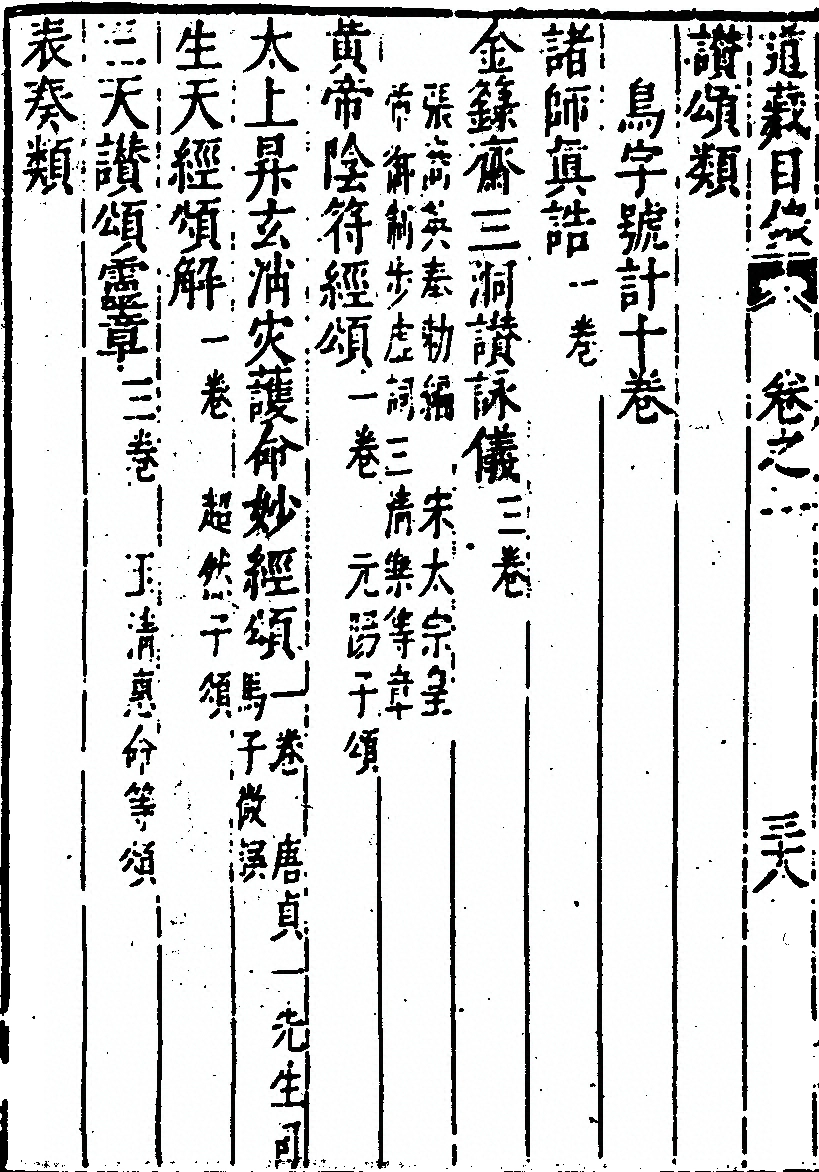 道藏目錄 卷之一 三十八
讚頌類
鳥字號計十卷
諸師眞誥一卷
金籙齋三洞讚詠儀三卷
張商英奉勅編 宋太宗皇
帝御制步虛詞三清樂等章
黃帝陰符經頌一卷 元陽子頌
太上昇玄消灾護命妙經頌一卷 唐貞一先生司
馬子微譔
生天經頌解一卷 超然子頌
三天讚頌靈章三卷 玉清惠命等頌
表奏類